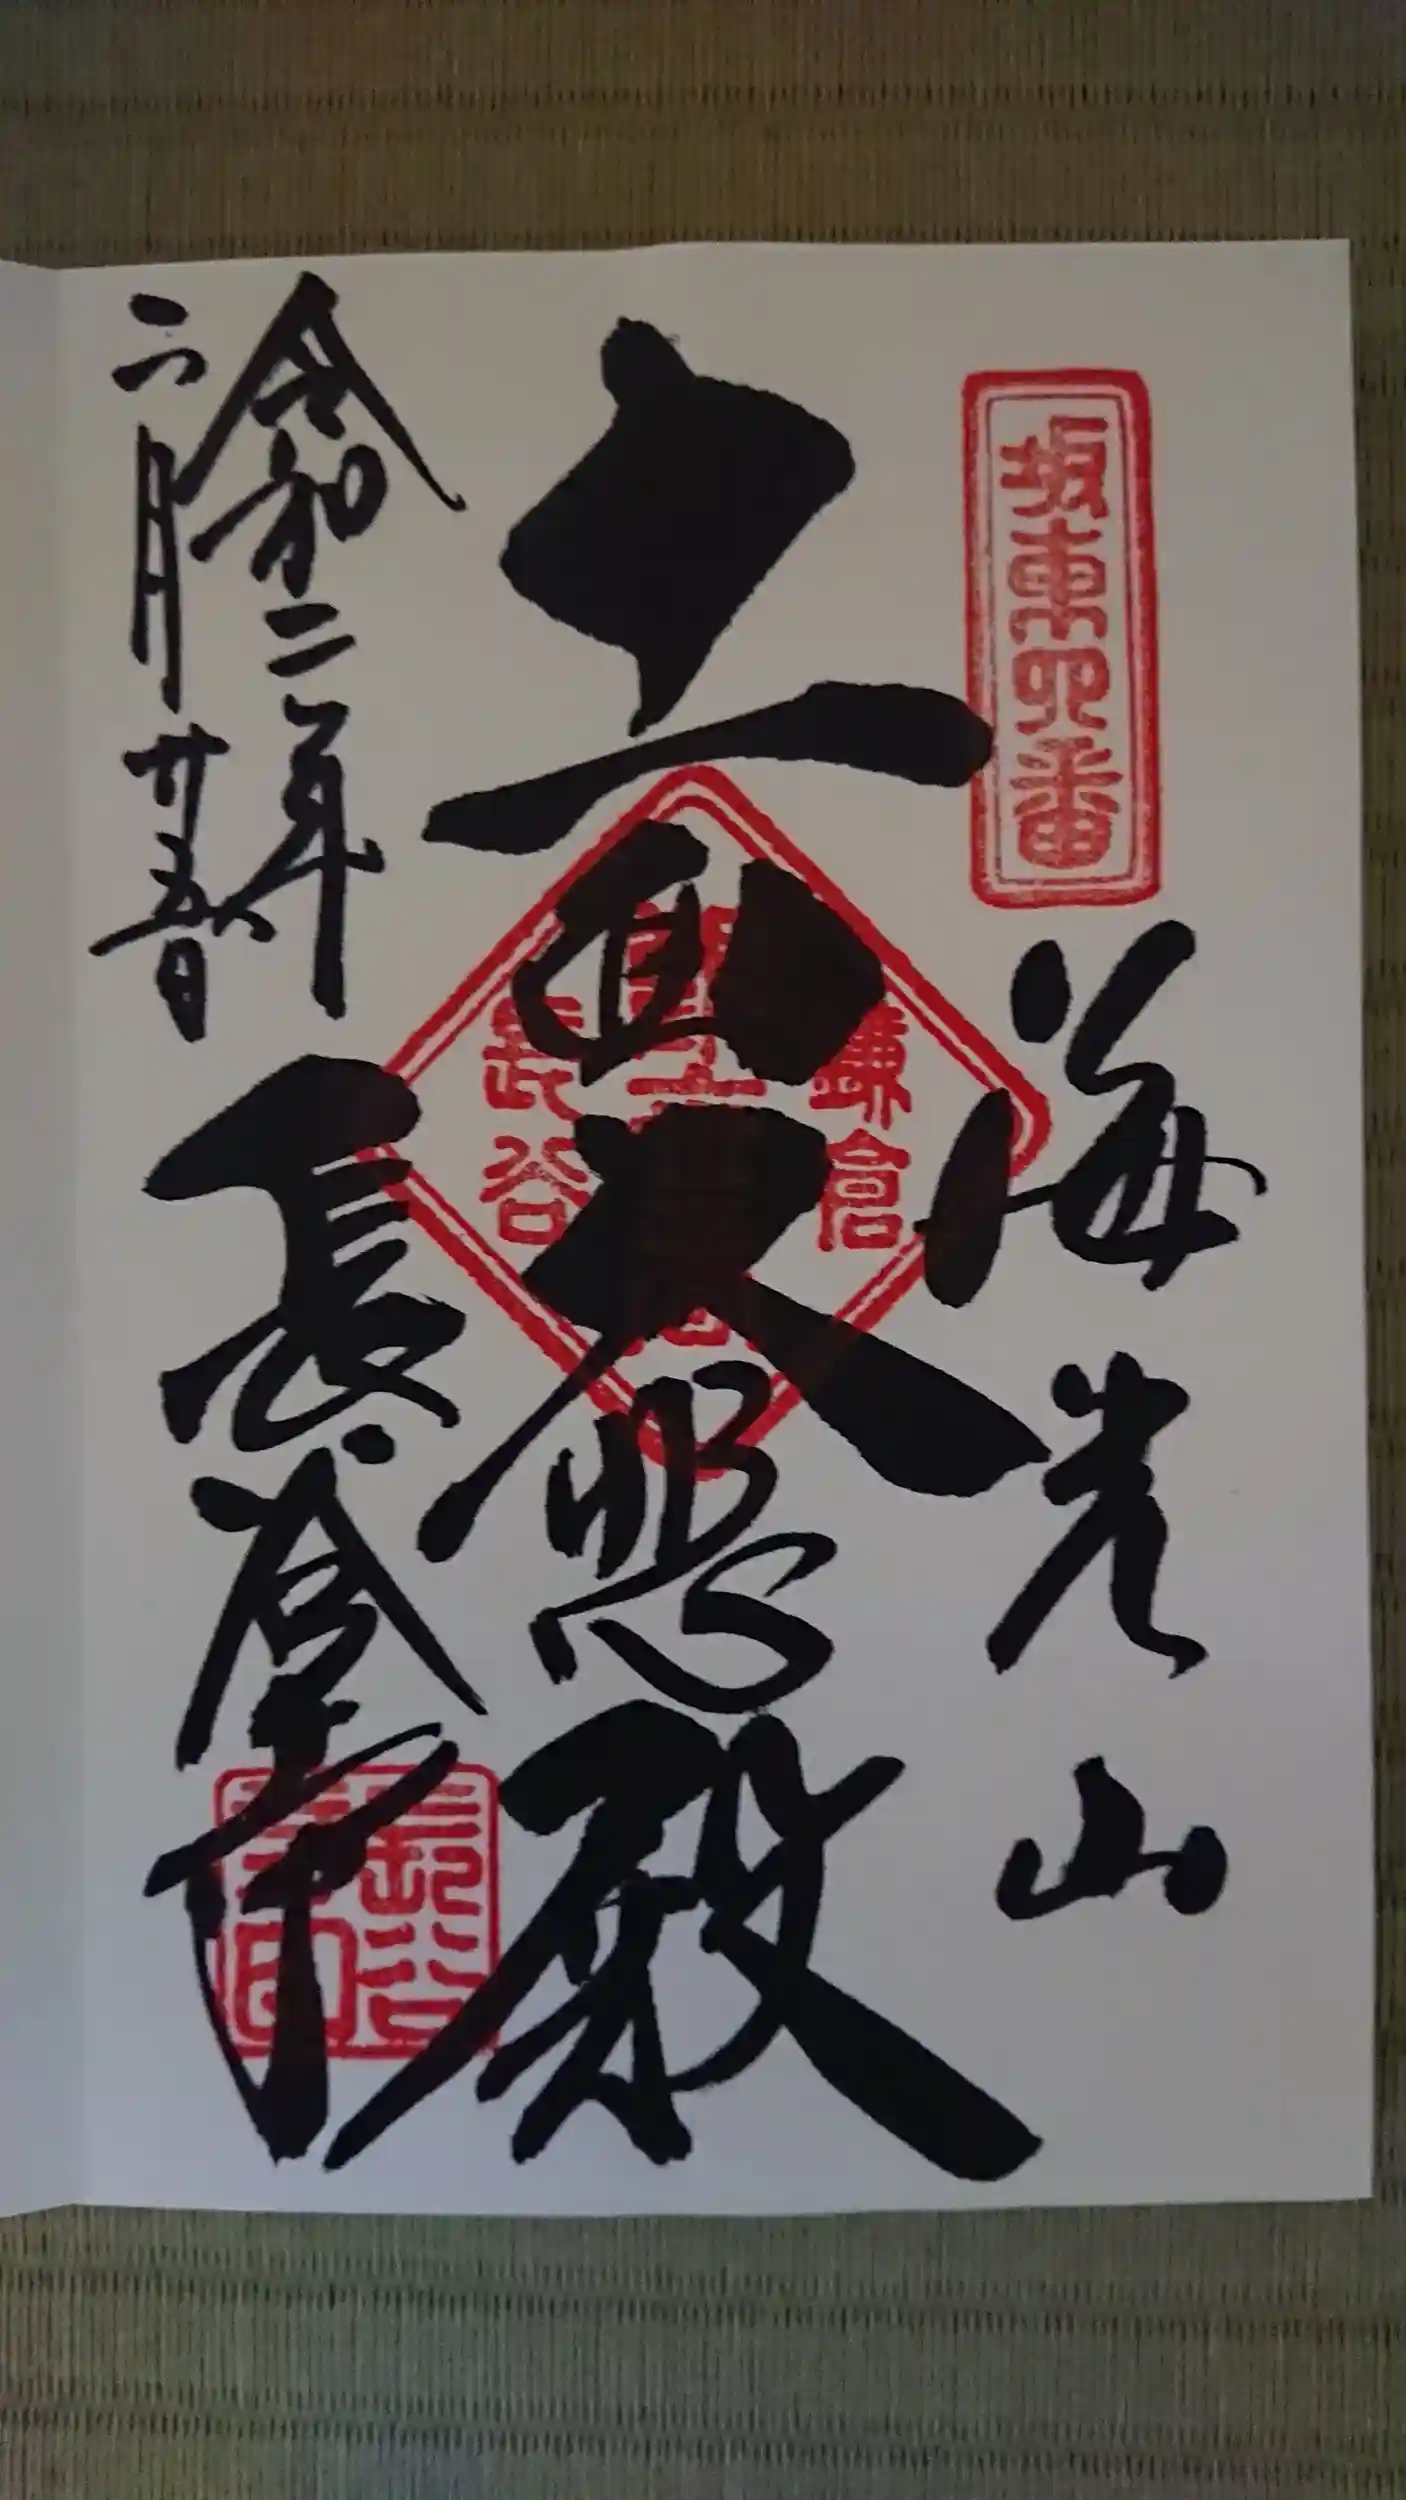 坂東四番
海光山
十一面大悲殿
鎌倉
長谷
長谷寺
長谷
寺印
令和二年
二月廿五日